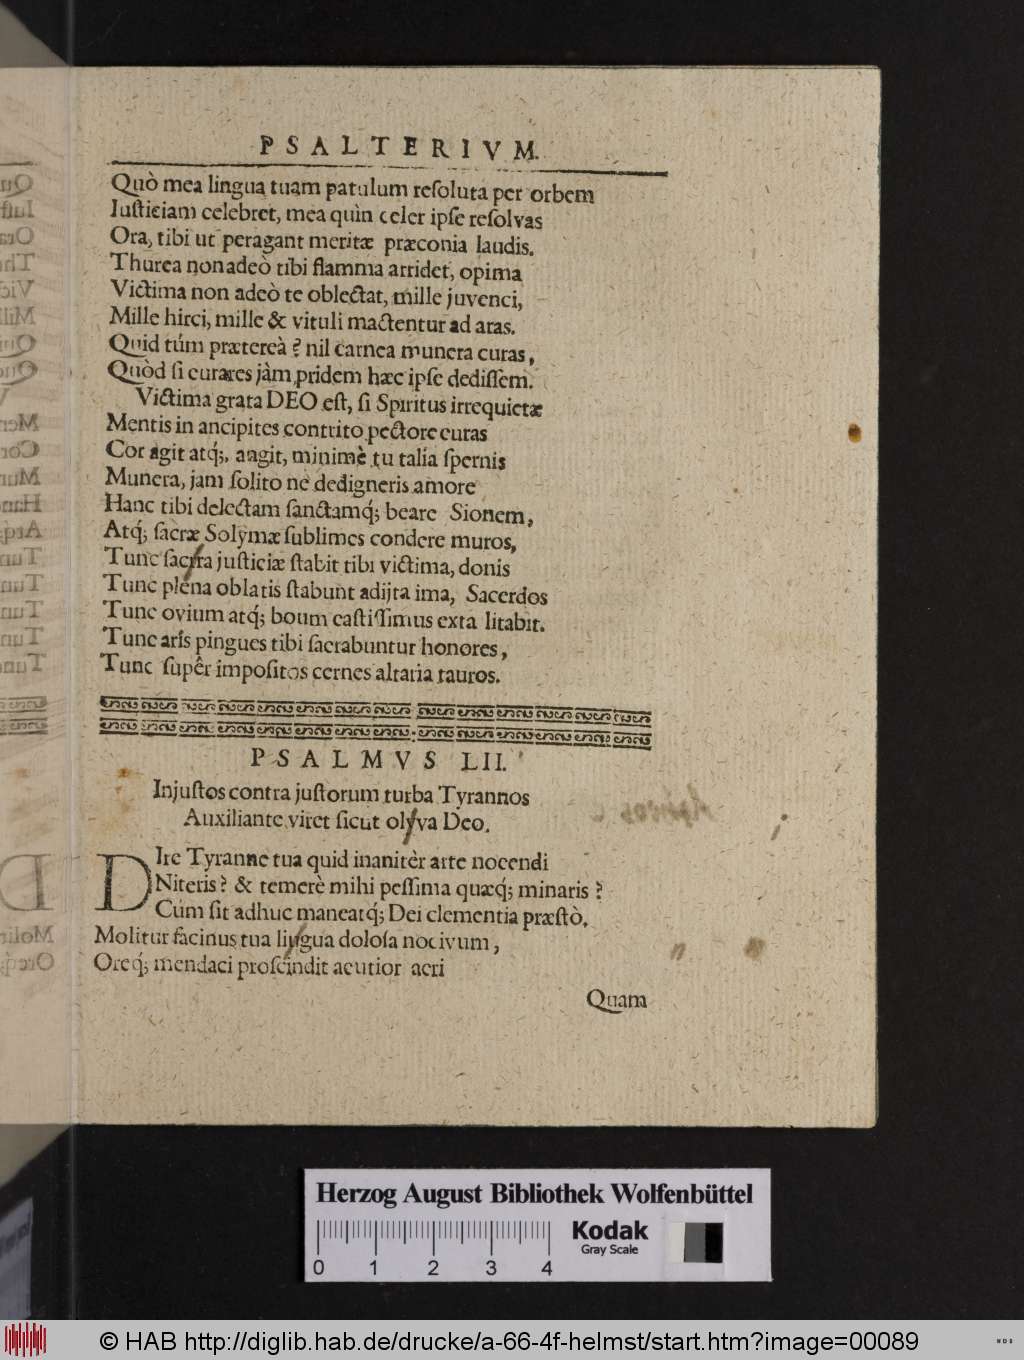 PSALTERIVM.
Quò mea lingua tuam patulum reſoluta per orbem
Iuſticiam celebret, mea quin celer ipſe reſolvas
Ora, tibi ut peragant meritæ præconia laudis.
Thurea non adeò tibi flamma arridet, opima
Victima non adeò te oblectat, mille juvenci,
Mille hirci, mille & vituli mactentur ad aras.
Quid túm prætereà? nil carnea munera curas,
Quòd ſi curares jàm pridem hæc ipſe dediſſem.
Victima grata DEO eſt, ſi Spiritus irrequietæ
Mentis in ancipites contrito pectore curas
Cor agit atq́;, angit, minimè tu talia ſpernis
Munera, jam ſolito ne dedigneris amore
Hanc tibi delectam ſanctamq́; beare Sionem,
Atq́; ſacræ Solymæ ſublimes condere muros,
Tunc ſacra juſticiæ ſtabit tibi victima, donis
Tunc plena oblatis ſtabunt adijta ima, Sacerdos
Tunc ovium atq́; boum caſtiſſimus exta litabit.
Tunc arís pingues tibi ſacrabuntur honores,
Tunc ſupêr impoſitos cernes altaria tauros.
PSALMVS LII.
Injuſtos contra juſtorum turba Tyrannos
Auxiliante viret ſicut olyva Deo.
DIre Tyranne tua quid inanitèr arte nocendi
Niteris? & temerè mihi peſſima quæq́; minaris?
Cùm ſit adhuc maneatq́; Dei clementia præſtò,
Molitur facinus tua lingua doloſa nocivum,
Oreq́; mendaci proſcindit acutior acri
Quam
Herzog August Bibliothek Wolfenbüttel
0 1 2 3 4
Kodak
Gray Scale
© HAB http://diglib.hab.de/drucke/a-66-4f-helmst/start.htm?image=00089